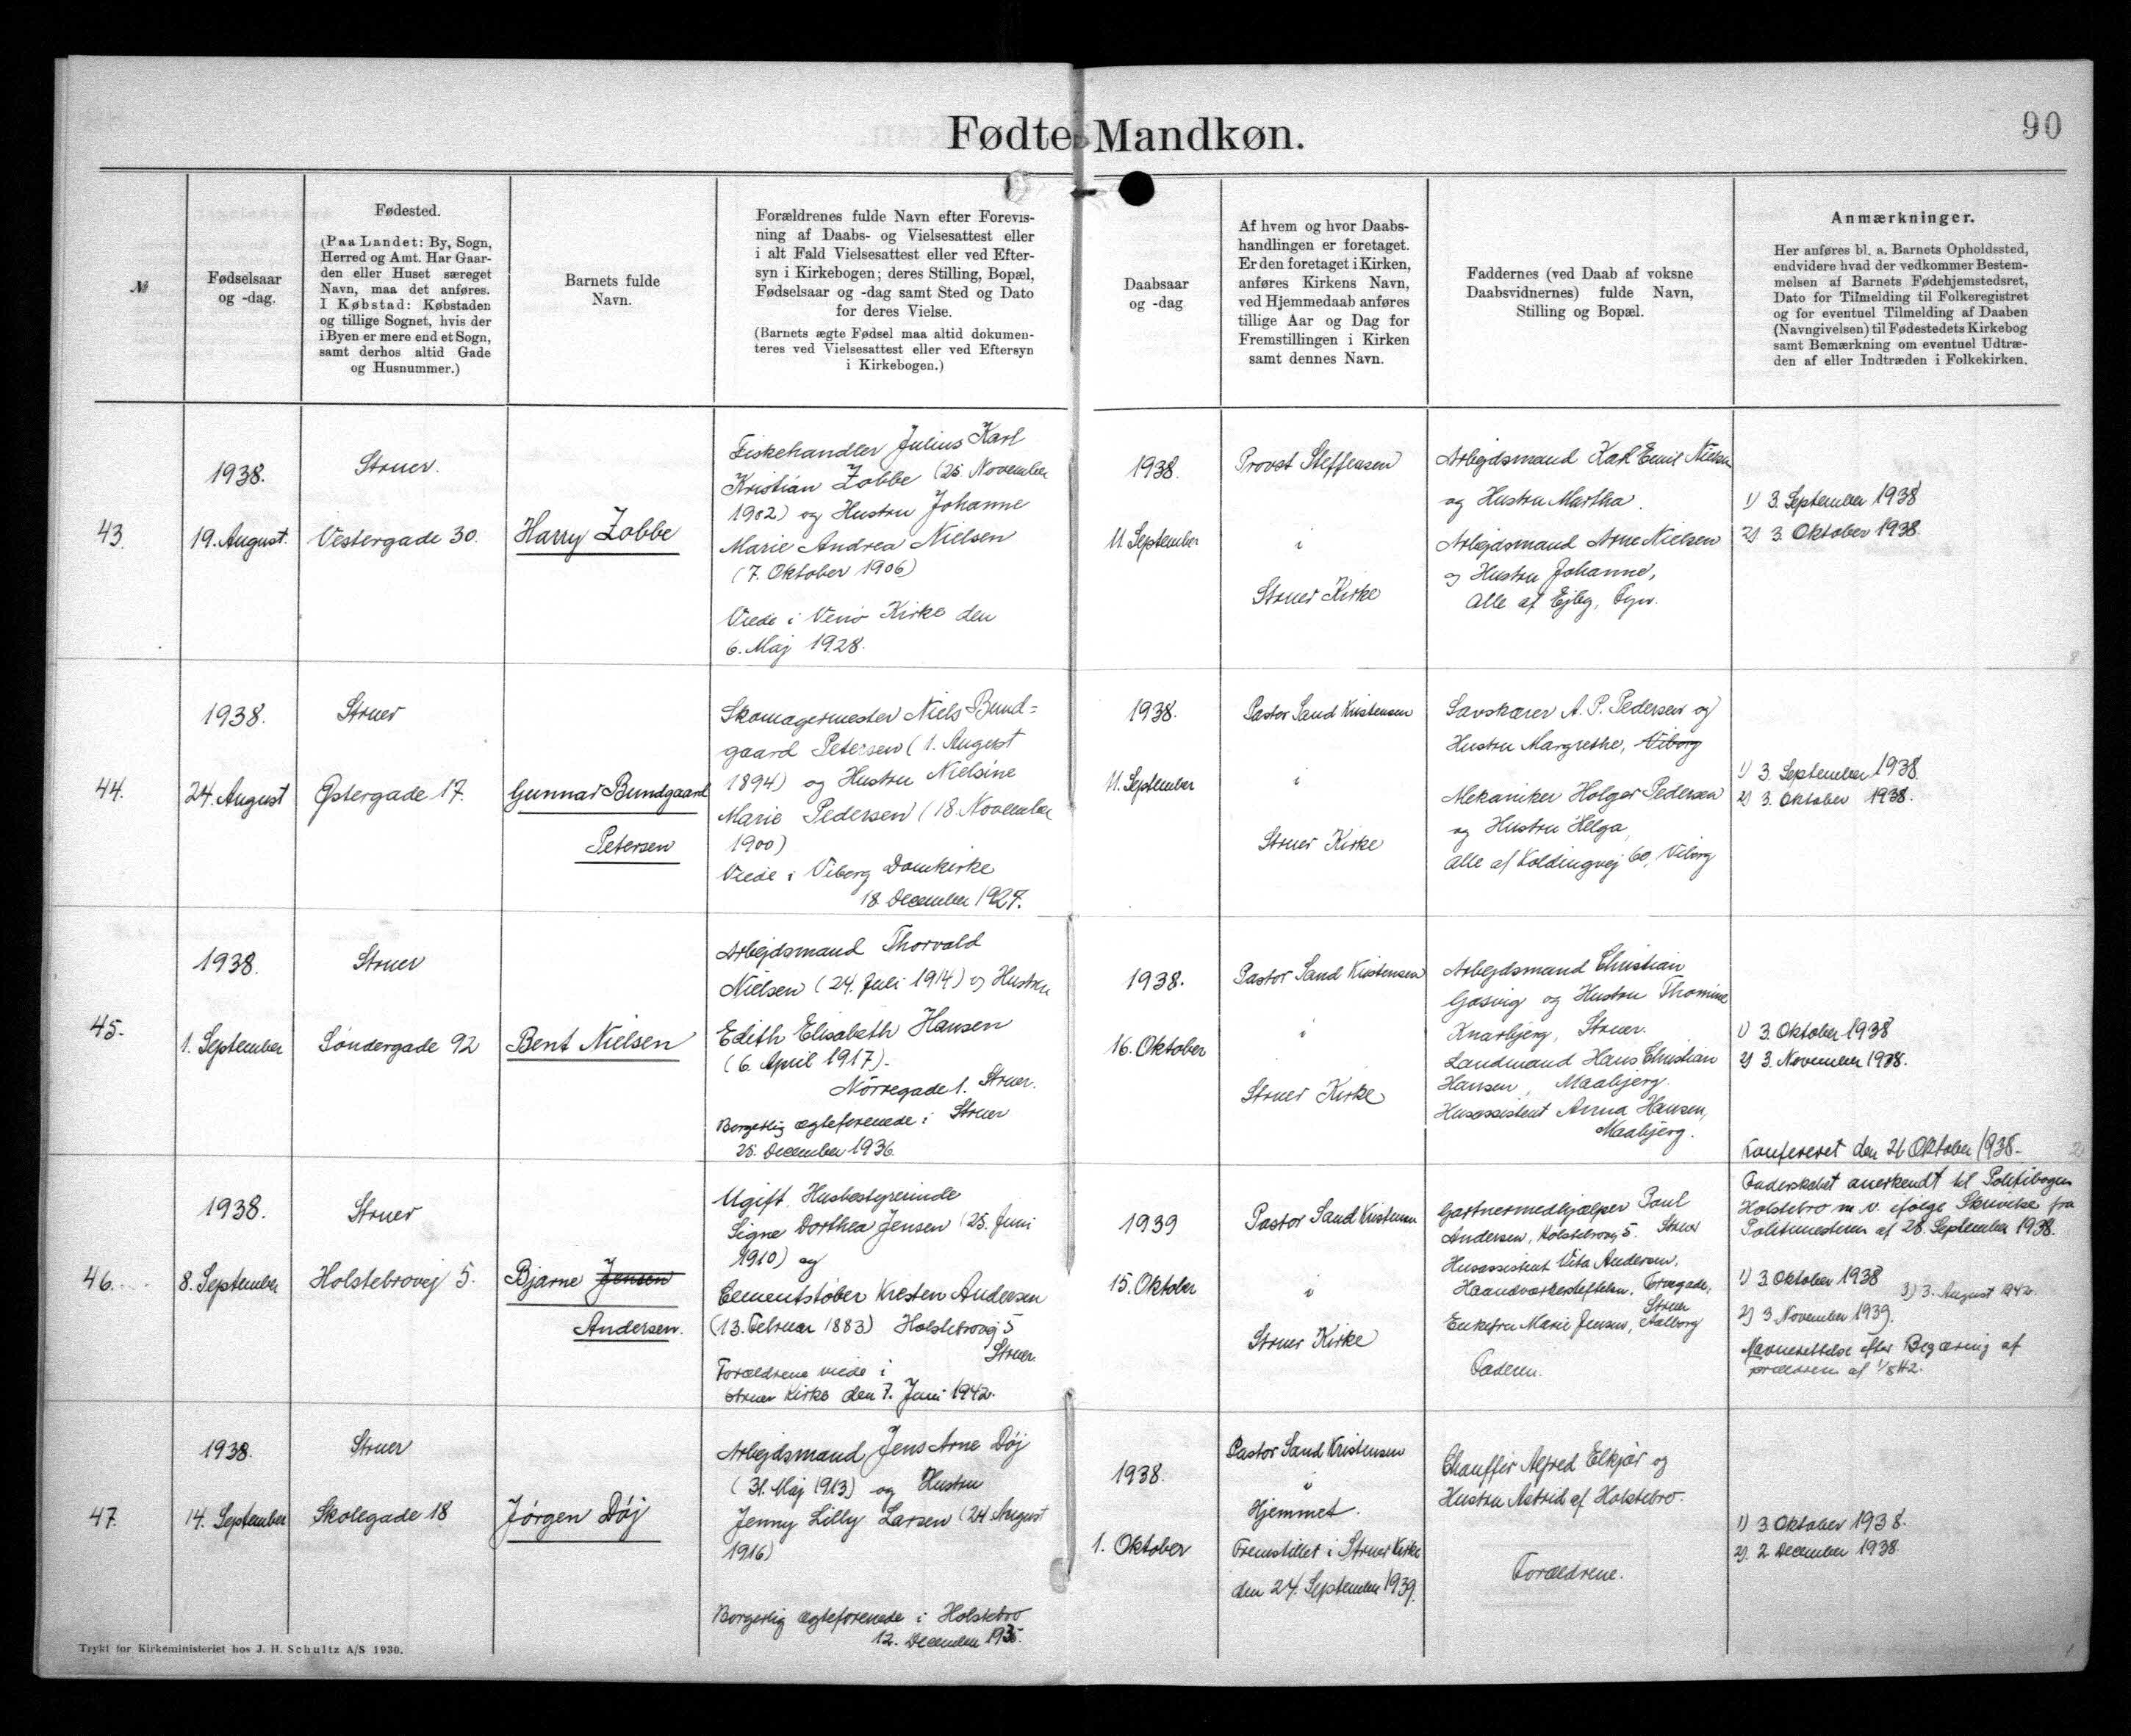 Fødte Mandkøn.
90
№
Fødselsaar
og -dag.
Fødested.
(Paa Landet: By, Sogn,
Herred og Amt. Har Gaar-
den eller Huset særeget
Navn, maa det anføres.
I Købstad: Købstaden
og tillige Sognet, hvis der
i Byen er mere end et Sogn,
samt derhos altid Gade
og Husnummer.)
Barnets fulde
Navn.
Forældrenes fulde Navn efter Forevis-
ning af Daabs- og Vielsesattest eller
i alt Fald Vielsesattest eller ved Efter-
syn i Kirkebogen; deres Stilling, Bopæl,
Fødselsaar og -dag samt Sted og Dato
for deres Vielse.
(Barnets ægte Fødsel maa altid dokumen-
teres ved Vielsesattest eller ved Eftersyn
i Kirkebogen.)
Daabsaar
og -dag
Af hvem og hvor Daabs-
handlingen er foretaget.
Er den foretaget i Kirken,
anføres Kirkens Navn,
ved Hjemmedaab anføres
tillige Aar og Dag for
Fremstillingen i Kirken
samt dennes Navn.
Faddernes (ved Daab af voksne
Daabsvidnernes) fulde Navn,
Stilling og Bopæl.
Anmærkninger.
Her anføres bl. a. Barnets Opholdssted,
endvidere hvad der vedkommer Bestem-
melsen af Barnets Fødehjemstedsret,
Dato for Tilmelding til Folkeregistret
og for eventuel Tilmelding af Daaben
(Navngivelsen) til Fødestedets Kirkebog
samt Bemærkning om eventuel Udtræ-
den af eller Indtræden i Folkekirken.
43.
1938.
19. August.
Struer.
Vestergade 30.
Harry Zobbe
Fiskehandler Julius Karl
Kristian Zobbe (25. November
1902) og Hustru Johanne
Marie Andrea Nielsen
(7. Oktober 1906)
Viede i Venø Kirke den
6. Maj 1928.
1938.
11. September
Provst Steffensen
i
Struer Kirke
Arbejdsmand Karl Emil Nielsen
og Hustru Martha.
Arbejdsmand Arne Nielsen
og Hustru Johanne,
Alle af Ejby, Fyn.
1) 3. September 1938
2) 3. Oktober 1938.
44.
1938.
24. August
Struer
Østergade 17.
Gunnar Bundgaard
Petersen
Skomagermester Niels Bund=
gaard Petersen (1. August
1894) og Hustru Nielsine
Marie Pedersen (18. November
1900)
Viede i Viborg Domkirke
18. December 1927.
1938.
11. September
Pastor Sand Kristensen
i
Struer Kirke
Savskærer A. P. Pedersen og
Hustru Margrethe, Viborg
Mekaniker Holger Pedersen
og Hustru Helga,
Alle af Koldingvej 60, Viborg
1) 3. September 1938.
2) 3. Oktober 1938.
45.
1938.
1. September
Struer
Söndergade 92
Bent Nielsen
Arbejdsmand Thorvald
Nielsen (24. Juli 1914) og Hustru
Edith Elisabeth Hansen
(6. April 1917).
Nörregade 1. Struer.
Borgerlig ægteforenede i Struer
25. December 1936.
1938.
16. Oktober
Pastor Sand Kristensen
i
Struer Kirke
Arbejdsmand Christian
Gosvig og Hustru Thomine
Knarbjerg, Struer.
Landmand Hans Christian
Hansen, Maabjerg.
Husassistent Anna Hansen,
Maabjerg.
1) 3. Oktober 1938
2) 3. November 1938.
Konfereret den 26 Oktober 1938.
46.
1938.
8. September
Struer
Holstebrovej 5.
Bjarne Jensen
Andersen.
Ugift Husbestyrerinde
Signe Dorthea Jensen (25. Juni
1910) og
Cementstøber Kresten Andersen
(13. Februar 1883) Holstebrovej 5
Struer.
Forældrene viede i
Struer Kirke den 7. Juni 1942.
1939
15. Oktober
Pastor Sand Kristensen
i
Struer Kirke
Gartnermedhjælper Poul
Andersen, Holstebrovej 5. Struer
Husassistent Vita Andersen,
Haandværkerstiftelsen, Torvegade,
Struer
Enkefru Marie Jensen, Aalborg
Faderen.
Faderskabet anerkendt til Politibogen
Holstebro m. v. ifølge Skrivelse fra
Politimesteren af 28. September 1938.
1) 3 Oktober 1938
3) 3. August 1942.
2) 3 November 1939.
Navnerettelse efter Begæring af
forældrene af 1/8 42.
47.
1938.
14. September
Struer
Skolegade 18
Jørgen Døj
Arbejdsmand Jens Arne Døj
(31. Maj 1913) og Hustru
Jenny Lilly Larsen (24 August
1916)
Borgerlig ægteforenede i Holstebro
12. December 1935.
1938.
1. Oktober
Pastor Sand Kristensen
i
Hjemmet.
Fremstillet i Struer Kirke
den 24. September 1939.
Chauffør Alfred Elkjær og
Hustru Astrid af Holstebro.
Forældrene.
1) 3 Oktober 1938.
2). 2 December 1938.
Trykt for Kirkeministeriet hos J. H. Schultz A/S 1930.